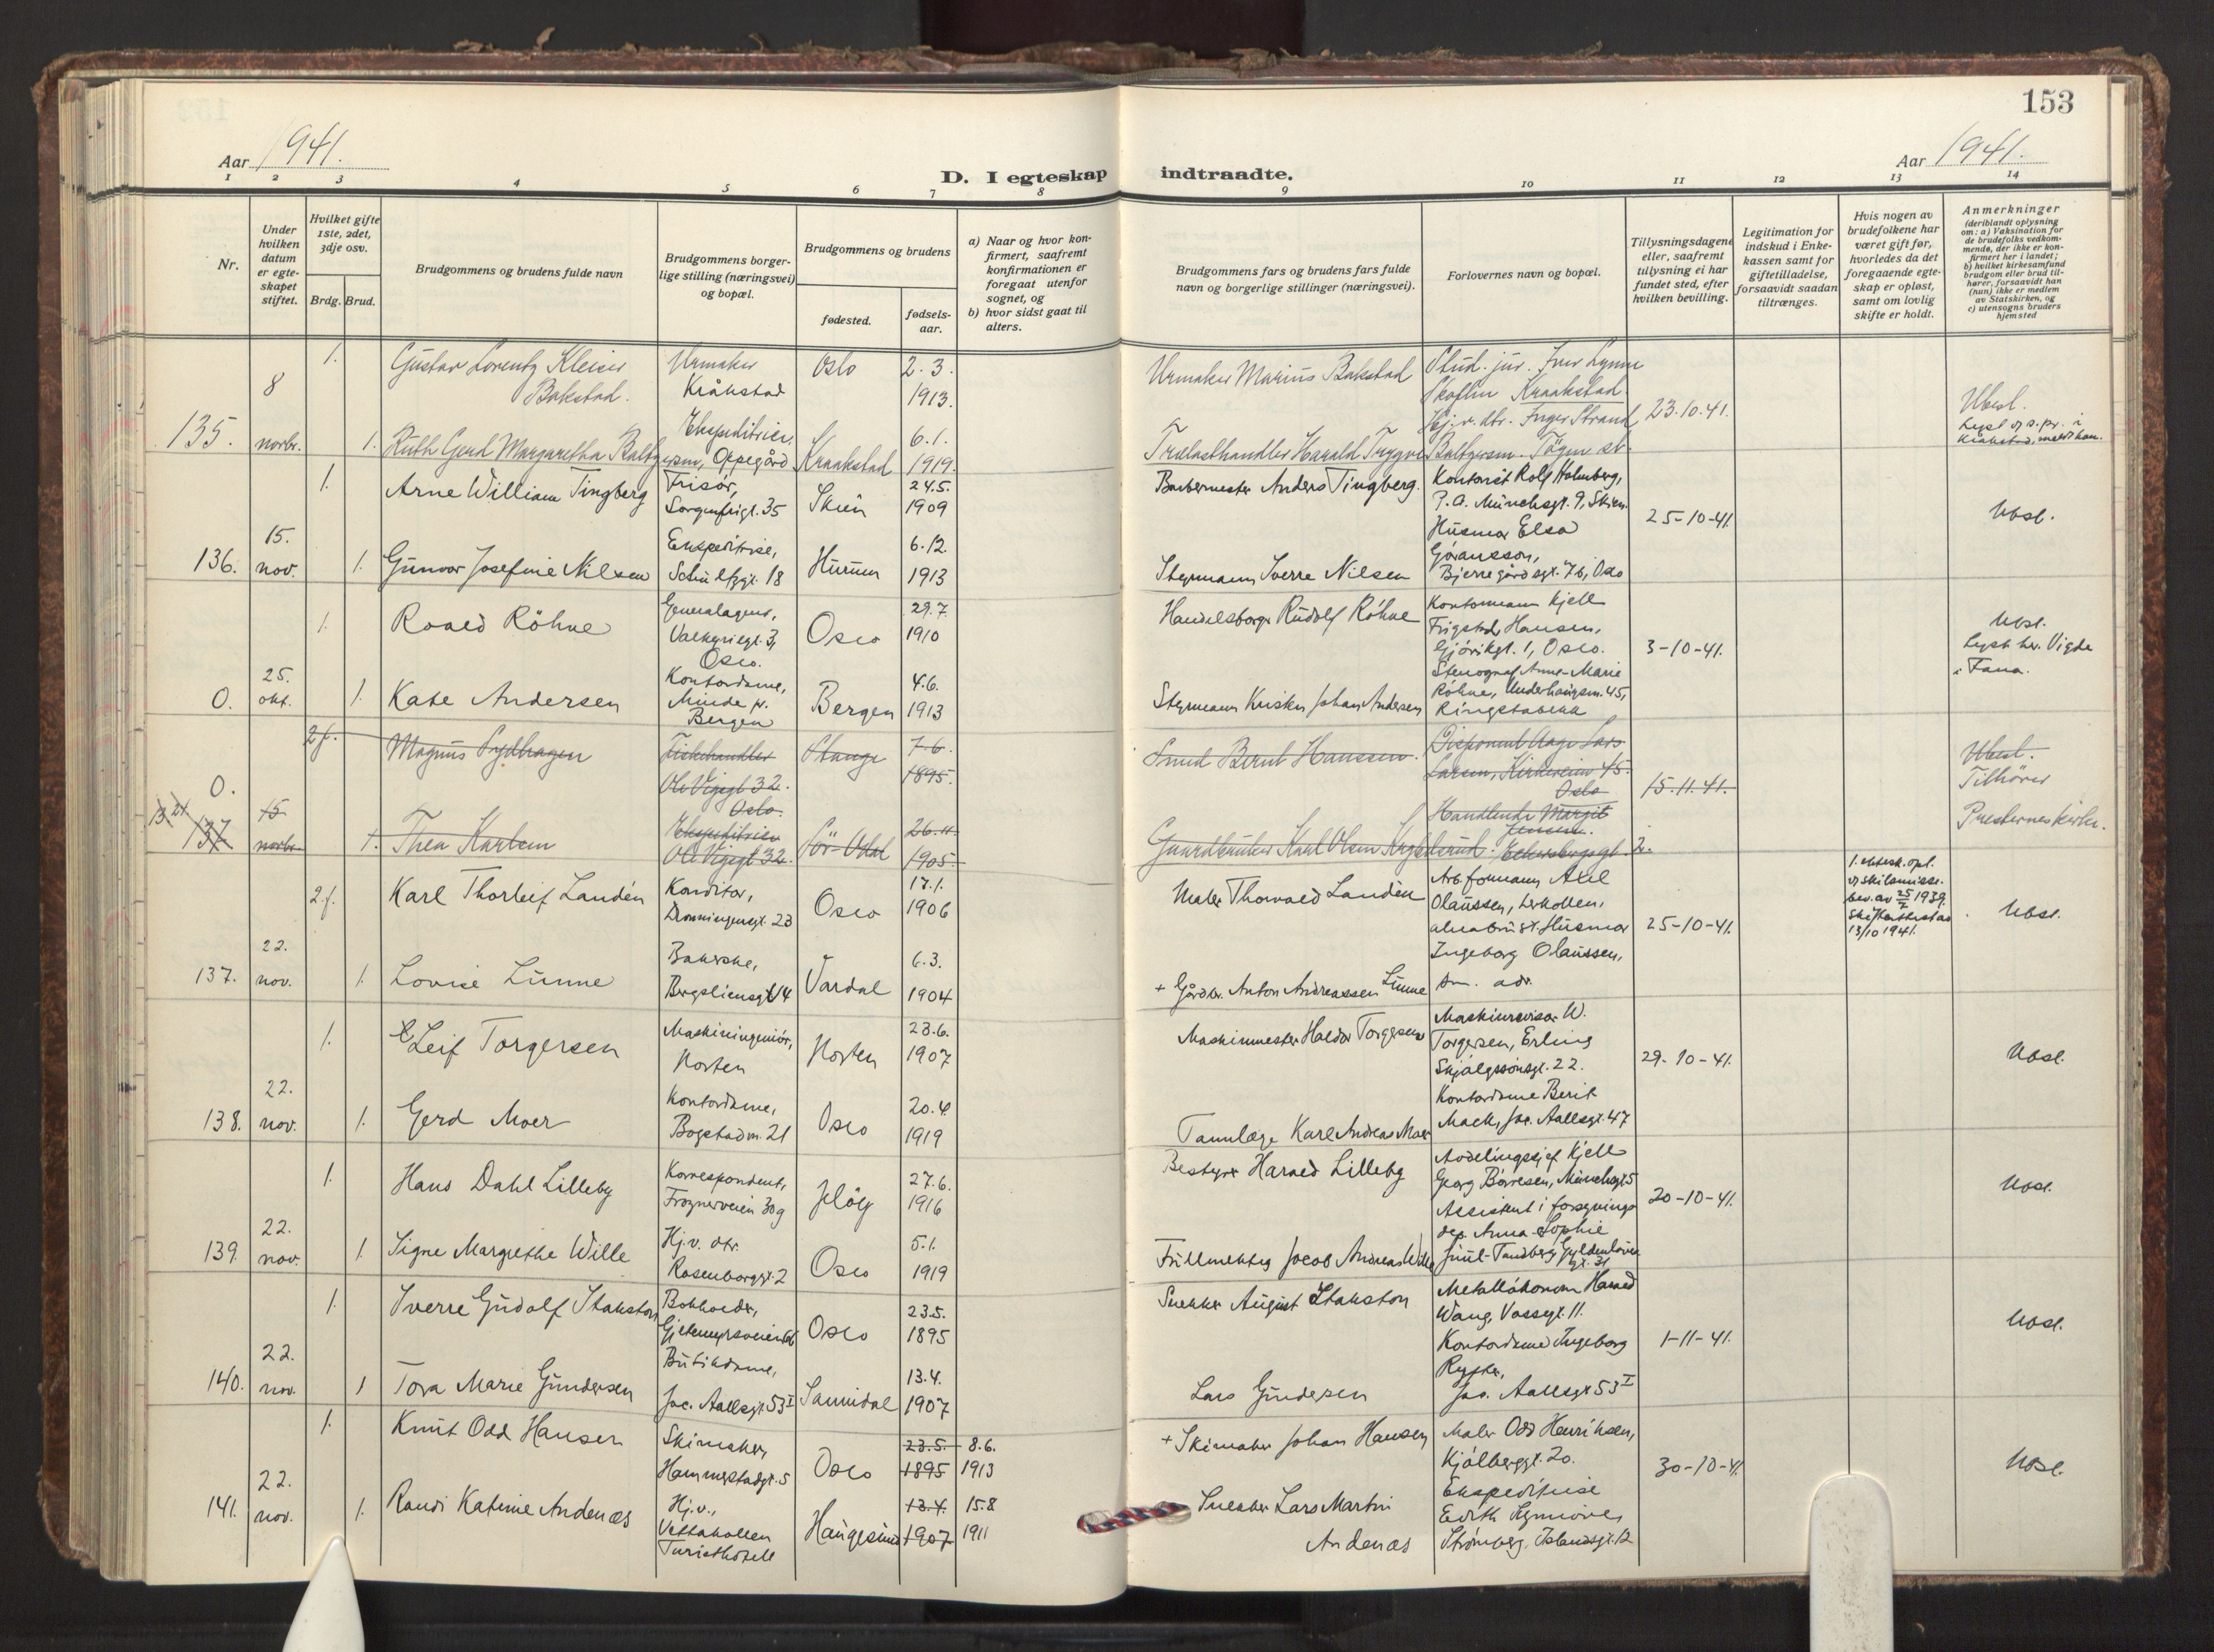 153
Aar 1941.
D. I egteskap indtraadte.
Aar 1941.
1 2 3 4 5 6 7 8 9 10 11 12 13 14
Nr.
Under hvilken datum er egteskapet stiftet.
Hvilket gifte 1ste, 2det, 3dje osv.
Brdg. Brud.
Brudgommens og brudens fulde navn
Brudgommens borgerlige stilling (næringsvei) og bopæl.
Brudgommens og brudens
fødested.
fødselsaar.
a) Naar og hvor konfirmert, saafremt konfirmationen er foregaat utenfor sognet, og
b) hvor sidst gaat til alters.
Brudgommens fars og brudens fars fulde navn og borgerlige stillinger (næringsvei).
Forlovernes navn og bopæl.
Tillysningsdagene eller, saafremt tillysning ei har fundet sted, efter hvilken bevilling.
Legitimation for indskud i Enkekassen samt for giftetilladelse, forsaavidt saadan tiltrænges.
Hvis nogen av brudefolkene har været gift før, hvorledes da det foregaaende egteskap er opløst, samt om lovlig skifte er holdt.
Anmerkninger
(deriblandt oplysning om: a) Vaksination for de brudefolks vedkommende, der ikke er konfirmert her i landet; b) hvilket kirkesamfund brudgom eller brud tilhører, forsaavidt han (hun) ikke er medlem av Statskirken, og c) utensogns bruders hjemsted
135. 8 novbr.
1. Gustav Lorentz Bakstad. Urmaker Kråkstad Oslo 2.3. 1913.
Urmaker Marius Bakstad Stud. jur. Kraakstad. 23.10.41.
1. Ruth Gerd Margaretha Oppegård Kraakstad 6.1. 1919.
Trælasthandler Harald Trygve
136. 15. nov.
1. Arne William Tingberg Frisør, Sorgenfrigt. 35 Skien 24.5. 1909
Barbermester Anders Tingberg. Kontorist Rolf Holmberg, P.A. Munchsgt. 9, Skien. 25-10-41. Ubsl.
1. Gunvor Josefine Nilsen Ekspeditrise, 18 Hurum 6.12. 1913
Styrmann Sverre Nilsen Husmor Elsa Gøransson, Bjerregårdsgt. 76, Oslo
0. 25. okt.
1. Roald Röhne Generalagent, Valkyriegt. 3, Oslo. Oslo 29.7. 1910
Handelsborger Rudolf Röhne Kontormann Kjell Frigstad Hansen, Gjøvikgt. 1, Oslo. 3-10-41. Ubsl. Lyst her. Vigde i Fana.
1. Kate Andersen Kontordame, Minde pr. Bergen Bergen 4.6. 1913
Styrmann Kristen Johan Andersen Stenograf Anne-Marie Röhne, Underhaugsvn. 45, Ringstabekk
0. 137 15 novbr.
2 f. Magnus Sydhagen Fiskehandler Ole Vigsgt 32. Oslo. Stange 7-6. 1895.
Smed Bernt Hanssen. Disponent Aage Lars Larsen, Kirkeveien 45. Oslo 15.11.41. Ubesl. Tilhører Presternes kirkeb.
1. Thea Karlsen Ekspeditrise Ole Vigsgt 32. Sör-Odal 26.11. 1905.
Gaardbruker Karl Olsen Handlende Margit Jensen.
137. 22. nov.
2 f. Karl Thorleif Landén Konditor, Dronningensgt. 23 Oslo 17.1. 1906
Maler Thorvald Landén Arb. formann Axel Olaussen, Husmor Ingeborg Olaussen, sm. adr. 25-10-41. 13/10 1941. Ubsl.
1. Lovise Lunne Bakerske, Bergsliensgt. 14 Vardal 6.3. 1904
+ Gårdbr. Anton Andreassen Lunne
138. 22. nov.
1. Leif Torgersen Maskiningeniør, Horten Horten 23.6. 1907
Maskinmester Haldor Torgersen Maskinrevisor W. Torgersen, Erling Skjalgssonsgt. 22. 29-10-41. Ubsl.
1. Gerd Moer Kontordame, Bogstadvn. 21 Oslo 20.4. 1919
Tannlæge Karl Andreas Moer Kontordame Berit Mack, Jac. Aallsgt. 47
139. 22. nov.
1. Hans Dahl Lilleby Korrespondent, Frognerveien 30g Jeløy 27.6. 1916
Bestyrer Harald Lilleby Avdelingssjef Kjell Georg Børresen, Munchsgt. 5 20-10-41. Ubsl.
1. Signe Margrethe Wille Hj.v. dtr. Rosenborggt. 2 Oslo 5.1. 1919
Fullmektig Jacob Andreas Wille Assistent i forsynings dep. Anna-Sophie Juul-Tandberg, Gyldenløves gt. 31
140. 22. nov.
1. Sverre Gudolf Stakston Bokholder, Oslo 23.5. 1895
Snekker August Stakston Metalløkonom Harald Wang, Vossegt. 11. 1-11-41. Ubsl.
1 Tora Marie Gundersen Butikdame, Jac. Aallsgt. 53 I Sannidal 13.4. 1907
Lars Gundersen Kontordame Ingeborg Jac. Aallsgt 53 I
141. 22. nov.
1. Knut Odd Hansen Skimaker, Hammerstadgt. 5 Oslo 23.5. 1895 8.6. 1913
+ Skimaker Johan Hansen Maler Odd Henriksen, Kjølberggt. 20. 30-10-41. Ubsl.
1. Randi Katinie Andenæs Hj.v., Vettakollen Turisthotell Haugesund 13.4. 1907 15.8 1911
Snekker Lars Martin Andenæs Ekspeditrise Edith Synnøve Strømberg, Islandsgt. 12